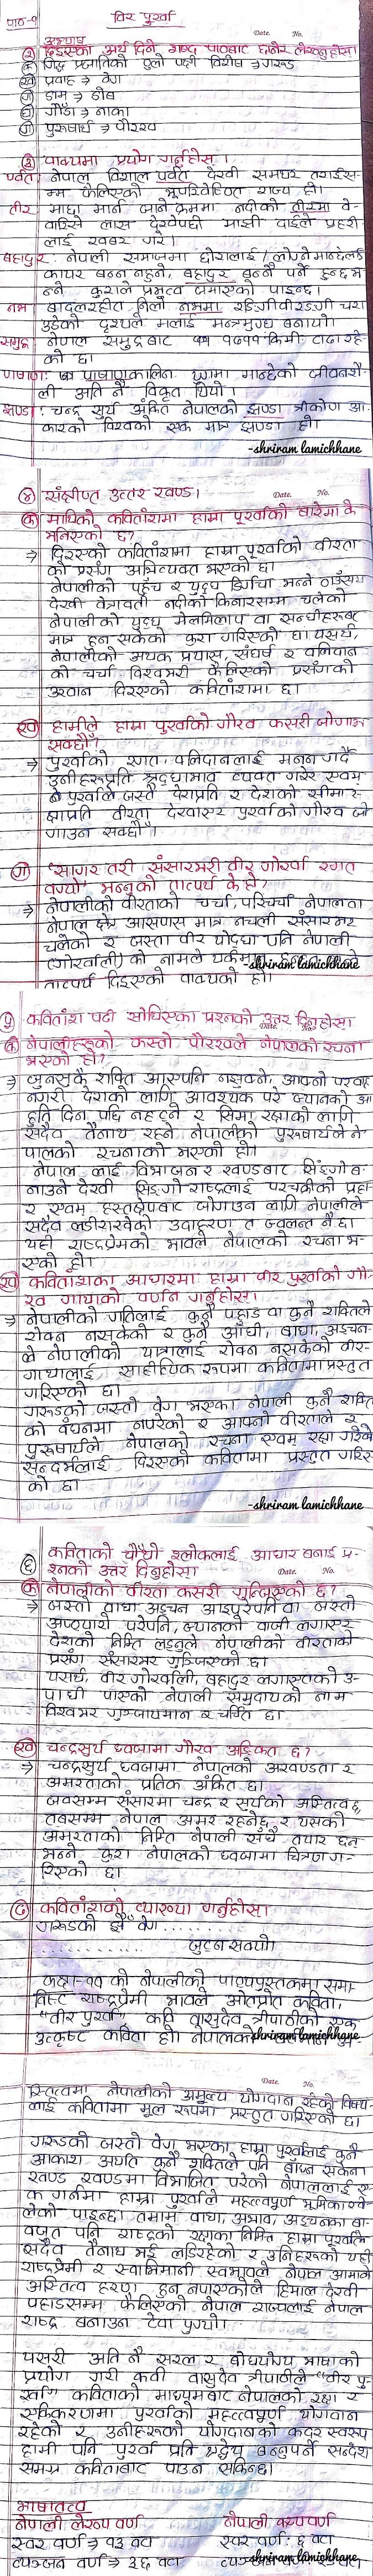 पाठ-१ विर पुर्खा
Date. No.
अभ्यास
दिइएका अर्थ दिने शब्द पाठबाट छानेर लेख्नुहोस।
क) गिद्ध प्रजातिको ठूलो पक्षी विशेष → गरुड
ख) प्रवाह → वेग
ग) डाम → डोब
घ) गौंडा → नाका
ङ) पुरुषार्थ → पौरख
३) वाक्यमा प्रयोग गर्नुहोस् ।
पर्वत: नेपाल विशाल पर्वत देखी समथर तराईस-
म्म फैलिएको भूपरिवेष्ठित राज्य हो।
तीर: माछा मार्न जाने क्रममा नदीको तीरमा वे-
वारिसे लास देखेपछी माझी दाईले प्रहरी
लाई खबर गरे।
बहादुर: नेपाली समाजमा छोरालाई / लोग्ने मान्छेलाई
कायर बन्न नहुने, बहादुर बन्नै पर्ने हुन्छ भ-
न्ने कुराले प्रभुत्व जमाएको पाइन्छ।
नभ: बादलरहीत निलो नभमा रङ्गीविरङ्गी चरा
उडेको दृश्यले मलाई मन्त्रमुग्ध बनायो।
समुद्र: नेपाल समुद्रबाट किमी टाढा रहे-
को छ।
पाषाण: पाषाणकालिन युगमा मान्छेको जीवनशै-
ली अति नै विकृत थियो ।
झण्डा: चन्द्र सूर्य अंकित नेपालको झण्डा त्रीकोण आ-
कारको विश्वको एक मात्र झण्डा हो।
-shriram lamichhane
Date. No.
४) संक्षीप्त उत्तर खण्ड।
क) माथिको कवितांशमा हाम्रा पूर्खाको बारेमा के
भनिएको छ?
⇒ दिइएको कवितांशमा हाम्रा पूर्खाको वीरता
को प्रसंग अभिव्यक्त भएको छ।
नेपालीको पहुँच र युद्ध भन्ने ठाउँसम्म
देखी वेत्रावती नदीको किनारसम्म चलेको
नेपालीको युद्ध मेलमिलाप वा सन्धीहरूबाट
मात्र हुन सकेको कुरा गरिएको छ। यसर्थ,
नेपालीको अथक प्रयास, संघर्ष र वलिदान
को चर्चा विश्वभरी फैलिएको प्रसंगको
उठान दिइएको कवितांशमा छ।
ख) हामीले हाम्रा पुर्खाको गौरव कसरी जोगाउन
सक्छौं?
⇒ पुर्खाको रगत, वलिदानलाई मनन गर्दै
उनीहरूप्रति श्रद्धाभाव व्यक्त गरेर एवम
नै पुर्खाले जस्तै देशप्रति र देशको सीमा र-
क्षाप्रति वीरता देखाएर पुर्खाको गौरव जो
गाउन सक्छौं।
ग) "सागर तरी संसारभरी वीर गोर्खा रगत
वग्यो" भन्नुको तात्पर्य के हो?
⇒ नेपालीको वीरताको चर्चा, परिचर्चा नेपाल वा
नेपाल क्षेत्र आसपास मात्र नचली संसारभर
चलेको र जस्ता वीर योद्धा पनि नेपाली
(गोर्खाली) को नामले
-shriram lamichhane
तात्पर्य दिइएको वाक्यको हो।
Date. No.
५) कवितांश पढी सोधिएका प्रश्नको उत्तर दिनुहोस।
क) नेपालीहरूको कस्तो पौरखले नेपालको रचना
भएको हो?
⇒ जुनसुकै शक्ति आएपनि नझुक्ने, आफ्नो परवाह
नगरी देशको लागि आवश्यक परे ज्यानको आ-
हुति दिन पछि नहट्ने र सिमा रक्षाको लागि
सदैव तैनाथ रहने नेपालीको पुरुषार्थले ने-
पालको रचनाको भएको हो।
नेपाल लाई विभाजन र खण्डबाट सिङ्गो ब-
नाउने देखी सिङ्गो राष्ट्रलाई परचक्रीको प्रहा-
र एवम हस्तक्षेपबाट जोगाउन लागि नेपालीले
सदैव लडीराखेको उदाहरण त ज्वलन्त नै छ।
यही राष्ट्रप्रेमको भावले नेपालको रचना भ-
एको हो।
ख) कवितांशका आधारमा हाम्रा वीर पुर्खाको गौ-
रव गाथाको वर्णन गर्नुहोस।
⇒ नेपालीको गतिलाई कुनै पहाड वा कुनै शक्तिले
रोक्न नसकेको र कुनै आँधी, वाधा, अड्चन-
ले नेपालीको यात्रालाई रोक्न नसकेको वीर-
गाथालाई साहीत्यिक रूपमा कवितामा प्रस्तुत
गरिएको छ।
गरुडको जस्तो वेग भएका नेपाली कुनै शक्ति
को वन्धनमा नपरेको र आफ्नो वीरताले र
पुरुषार्थले नेपालको रचना एवम् रक्षा गरेको
सन्दर्भलाई दिइएको कवितामा प्रस्तुत गरिए-
को छ।
-shriram lamichhane
६) कविताको चौथो श्लोकलाई आधार बनाई प्र-
श्नको उत्तर दिनुहोस।
Date. No.
क) नेपालीको वीरता कसरी गुन्जिएको छ?
⇒ जस्तो वाधा अड्चन आइपरेपनि वा जस्तो
अप्ठ्यारो परेपनि, ज्यानको वाजी लगाएर
देशको निम्ति लड्नुले नेपालीको वीरताको
प्रसंग संसारभर गुञ्जिएको छ।
यसर्थ, वीर गोर्खाली, बहादुर लगाएतको उ-
पाधी पाएको नेपाली समुदायको नाम
विश्वभर गुञ्जायमान र चर्चित छ।
ख) चन्द्रसूर्य ध्वजामा गौरव अङ्कित छ?
⇒ चन्द्रसूर्य ध्वजामा नेपालको अखण्डता र
अमरताको प्रतिक अंकित छ।
जवसम्म संसारमा चन्द्र र सूर्यको अस्तित्व छ,
तबसम्म नेपाल अमर रहनेछ र यसको
अमरताको निम्ति नेपाली सधैं तयार छन
भन्ने कुरा नेपालको ध्वजामा चित्रण ग-
रिएको छ।
७) कवितांशको व्याख्या गर्नुहोस।
गरुडको झैं वेग . . . . . . . . .
. . . . . . . . . . छुट्न सक्यो।
कक्षा-११ को नेपालीको पाठ्यपुस्तकमा समा-
विष्ट राष्ट्रप्रेमी भावले ओतप्रोत कविता,
"वीर पुर्खा" कवि वासुदेव त्रीपाठीको एक
उत्कृष्ट कविता हो। नेपालको
shriram lamichhane
Date. No.
स्तित्वमा नेपालीको अमूल्य योगदान रहेको विषय-
लाई कवितामा मूल रूपमा प्रस्तुत गरिएको छ।
गरुडको जस्तो वेग भएका हाम्रा पुर्खालाई कुनै
आकाश अर्थात कुनै शक्तिले पनि बाँध्न सकेन।
खण्ड खण्डमा विभाजित भएको नेपाललाई ए-
क गर्नमा हाम्रा पुर्खाले महत्वपूर्ण भूमिका खे-
लेको पाइन्छ। तमाम वाधा, अभाव, अड्चनका बा-
वजुत पनि राष्ट्रको रक्षाका निम्ति हाम्रा पुर्खाले
सदैव तैनाथ भई लडिरहेको र उनिहरूको यही
राष्ट्रप्रेमी र स्वाभिमानी स्वभावले नेपाल आमाको
अस्तित्व हरण हुन नपाएकोले हिमाल देखी
पहाडसम्म फैलिएको नेपाल राज्यलाई नेपाल
राष्ट्र बनाउन टेवा पुग्यो।
यसरी अति नै सरल र बोधयोग्य भाषाको
प्रयोग गरी कवी वासुदेव त्रीपाठीले "वीर पु-
र्खा" कविताको माध्यमबाट नेपालको रक्षा र
एकिकरणमा पुर्खाको महत्वपूर्ण योगदान
रहेको र उनीहरूको योगदानको कदर स्वरूप
हामी पनि पुर्खा प्रति श्रद्धेय बन्नुपर्ने सन्देश
समग्र कविताबाट पाउन सकिन्छ।
भाषातत्व
नेपाली लेख्य वर्ण नेपाली कथ्य वर्ण
स्वर वर्ण → १३ वटा स्वर वर्ण: ६ वटा
व्यञ्जन वर्ण → ३६ वटा
-shriram lamichhane